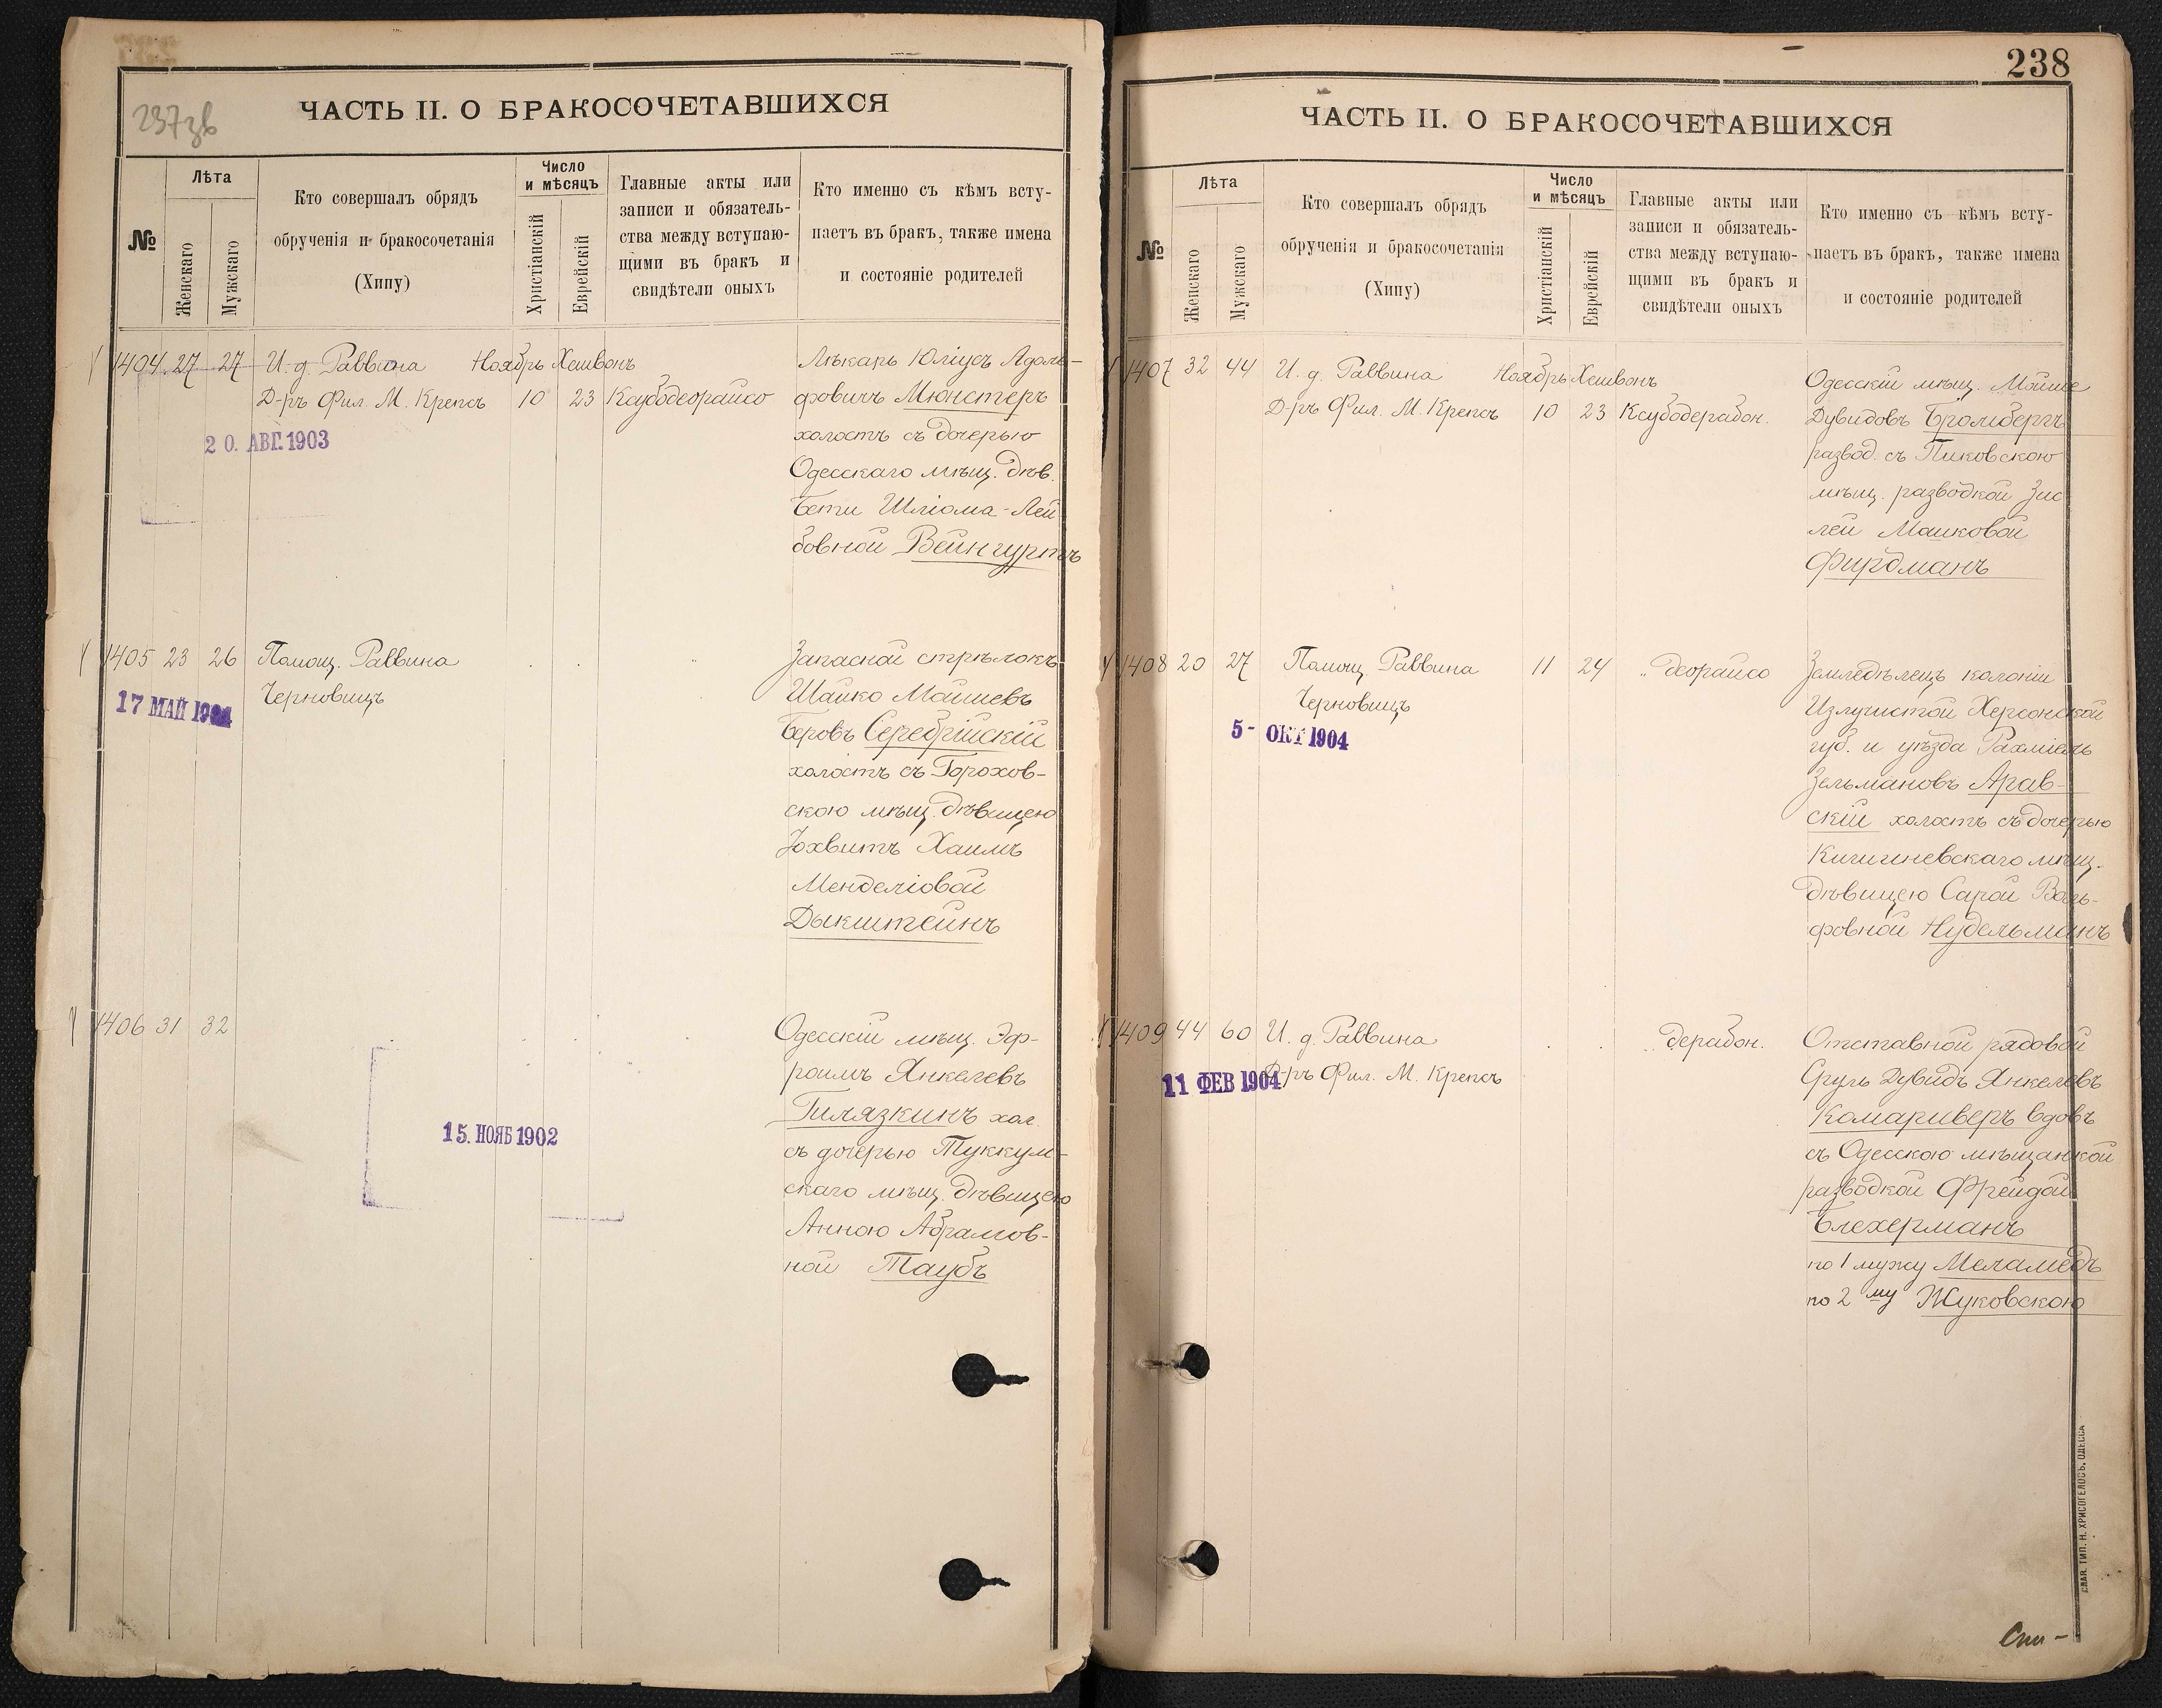 237зв
ЧАСТЬ II. О БРАКОСОЧЕТАВШИХСЯ
№
Лѣта
Женскаго
Мужскаго
Кто совершалъ обрядъ
обрученія и бракосочетанія
(Хипу)
Число
и мѣсяцъ
Христіанскій
Еврейскій
Главные акты или
записи и обязатель-
ства между вступаю-
щими въ бракъ и
свидѣтели оныхъ
Кто именно съ кѣмъ всту-
паетъ въ бракъ, также имена
и состояніе родителей
1404 27 27 И. д. Раввина Ноябрь Хешвонъ
Д-ръ Фил. М. Крепсъ 10 23 Ксубодеорайсо
20. АВГ. 1903
Лѣкарь Юліусъ Адоль-
фовичъ Мюнстеръ
холостъ съ дочерью
Одесскаго мѣщ. дѣв.
Бети Шліома-Лей
бовной Вейнгуртъ
1405 23 26 Помощ. Раввина
Черновицъ
17 МАЙ 1904
Запасной стрѣлокъ
Шайко Мойшевъ
Беровъ Серебрійскій
холостъ съ Горохов-
скою мѣщ. дѣвицею
Іохвитъ Хаимъ
Менделіовой
Дыкштейнъ
1406 31 32
15. НОЯБ 1902
Одесскій мѣщ. Эф-
роимъ Янкелевъ
Гилязкинъ хол.
съ дочерью Туккум-
скаго мѣщ. дѣвицею
Анною Абрамов-
ной Таубъ
238
ЧАСТЬ II. О БРАКОСОЧЕТАВШИХСЯ
№
Лѣта
Женскаго
Мужскаго
Кто совершалъ обрядъ
обрученія и бракосочетанія
(Хипу)
Число
и мѣсяцъ
Христіанскій
Еврейскій
Главные акты или
записи и обязатель-
ства между вступаю-
щими въ бракъ и
свидѣтели оныхъ
Кто именно съ кѣмъ всту-
паетъ въ бракъ, также имена
и состояніе родителей
1407 32 44 И. д. Раввина Ноябрь Хешвонъ
Д-ръ Фил. М. Крепсъ 10 23 Ксубодерабон.
Одесскій мѣщ. Мойше
Дувидовъ Бромбергъ
развод. съ Пиковскою
мѣщ. разводкой Зис
лей Машковой
Фирдманъ
1408 20 27 Помощ. Раввина 11 24 „ деорайсо
Черновицъ
5- ОКТ 1904
Земледѣлецъ колоніи
Излучистой Херсонской
губ. и уѣзда Рахміель
Зельмановъ Арав-
скій холостъ съ дочерью
Кишиневскаго мѣщ.
дѣвицею Сарой Воль-
фовной Нудельманъ
1409 44 60 И. д. Раввина „ дерабон.
Д-ръ Фил. М. Крепсъ
11 ФЕВ 1904
Отставной рядовой
Сруль Дувидъ Янкелевъ
Комариверъ вдовъ
съ Одесскою мѣщанкой
разводкой Фрейдой
Блехерманъ
по 1 мужу Меламедъ
по 2му Жуковскою
СЛАВ. ТИП. Н. ХРИСОГЕЛОСЪ, ОДЕССА